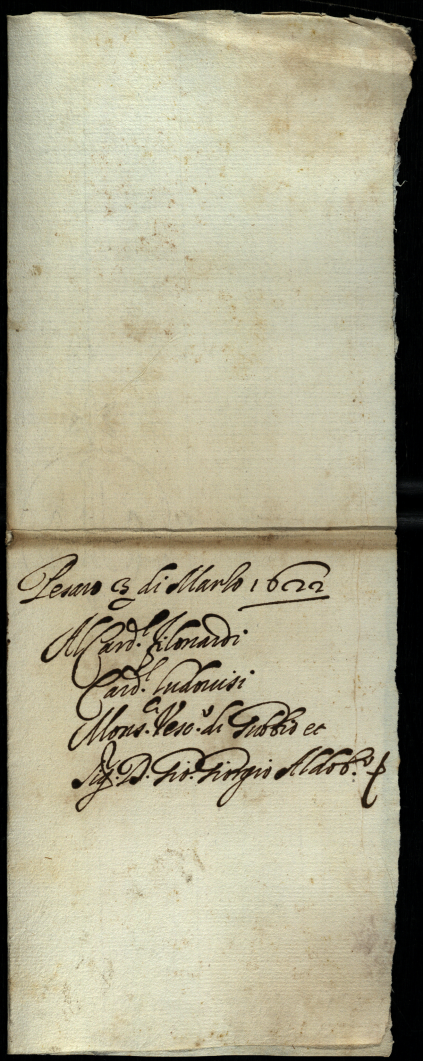 Pesaro 3 di Marzo 1622
Al Card.l Filonardi
Card.l Ludovisi
Mons.r Vesc.o di Gubbio et
Sig. D. Gio. Giorgio Aldob.o